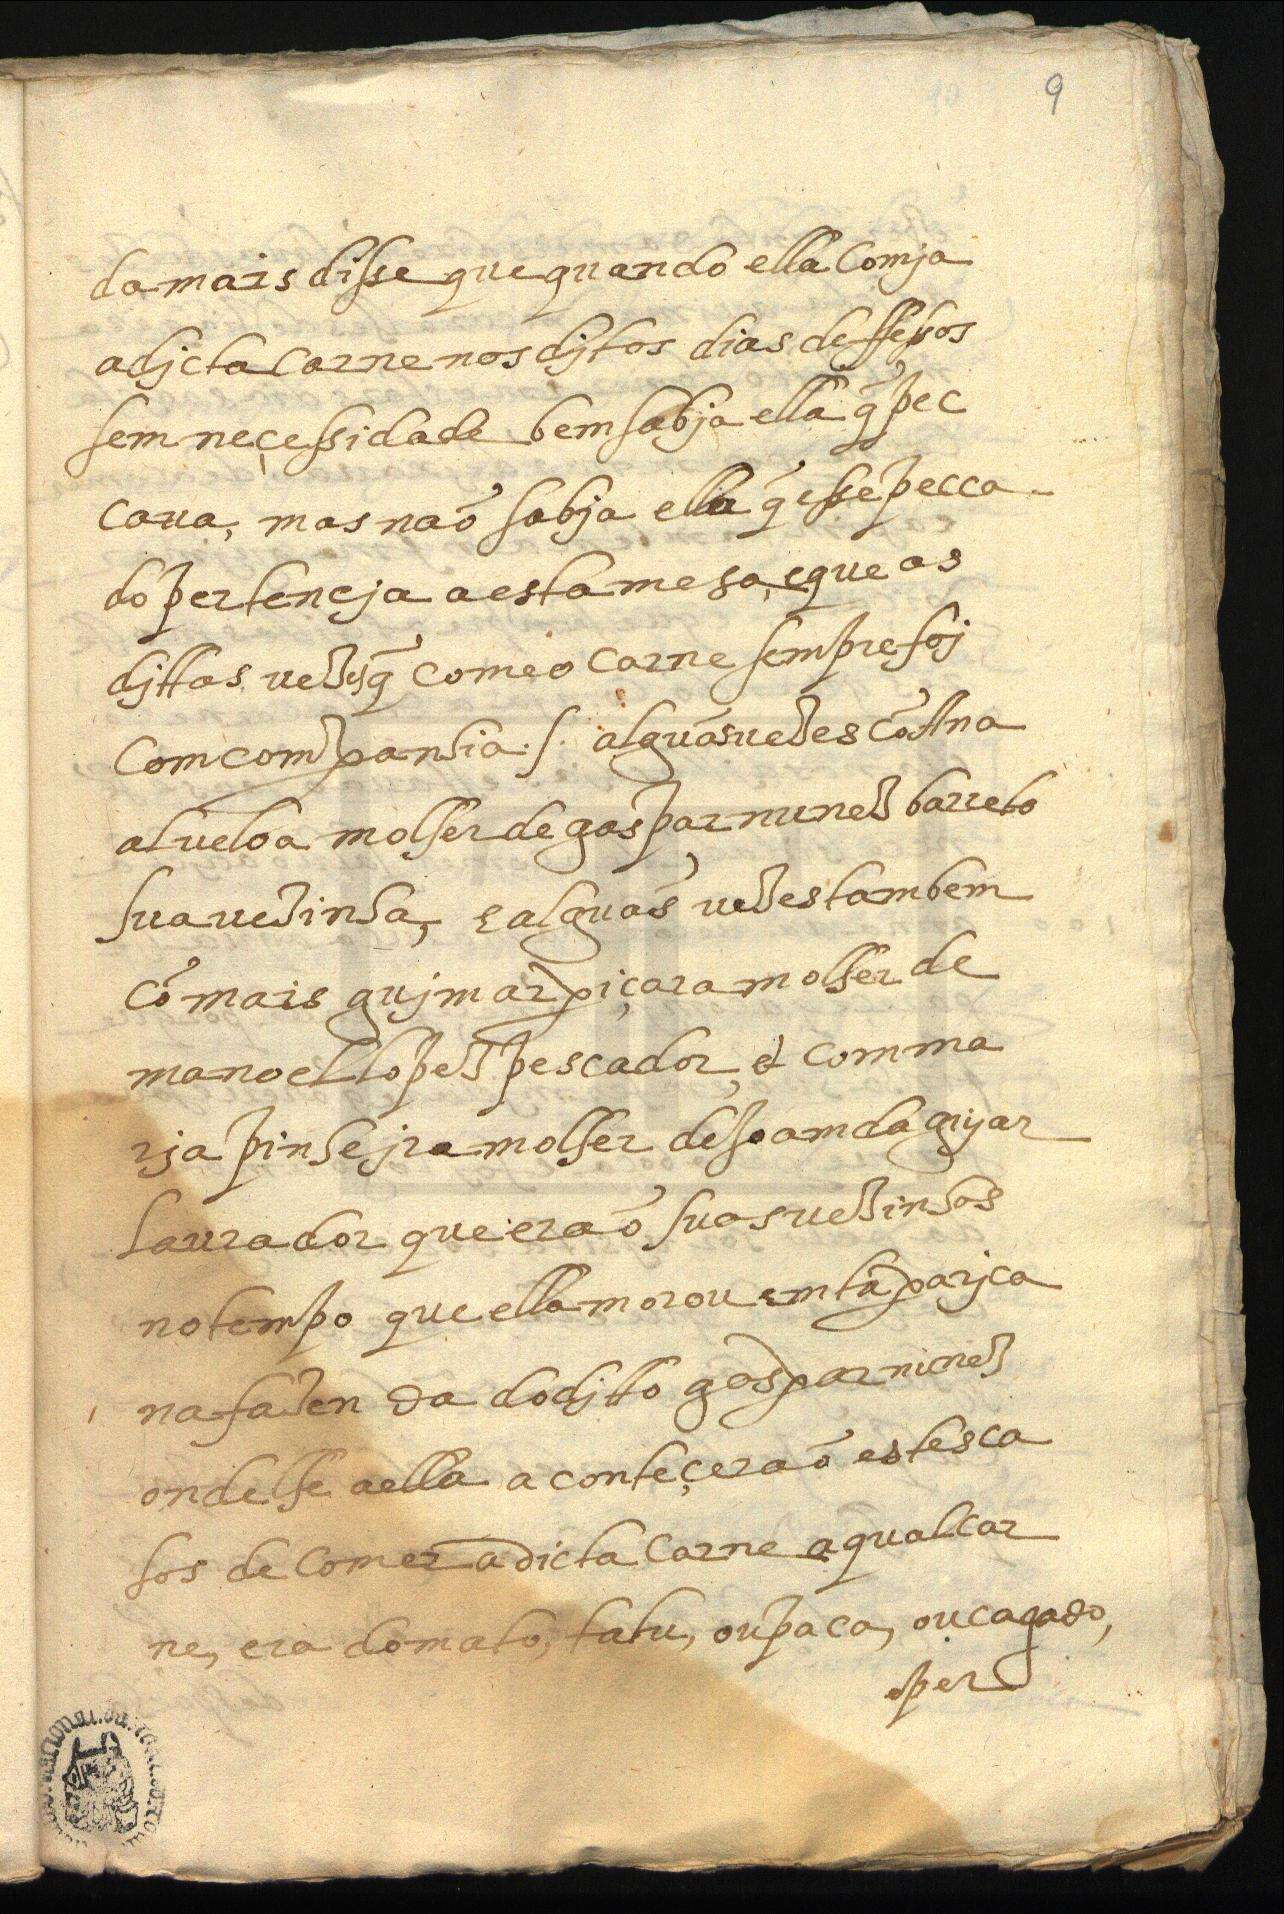 9
da mais disse que quando ella Comja
a djcta Carne nos djtos dias defessos
sem neçessidade bem sabja ella q̃ pec
caua, mas naõ sabja ella q̃ esse pecca
do pertencja a esta mesa, e que as
djttas vezes q̃ comeo Carne sempre foj
Com companhia .s. alguãs vezes cõ Ana
alueloa molher de gaspar nunez barreto
sua uezinha, e alguãs vezes tambem
cõ mais gujmar piçara molher de
manoel lopez pescador, & com ma
rja pinhejra molher de Joam daguyar
laurador que eraõ suas uezinhas
no tempo que ella morou em taparjca
na fazenda do djtto gaspar nunez
onde lhe a ella aconteçeraõ estes ca
sos de Comer a dicta Carne a qual Car
ne, era do mato, tatu, ou paca, ou cagado,
e per